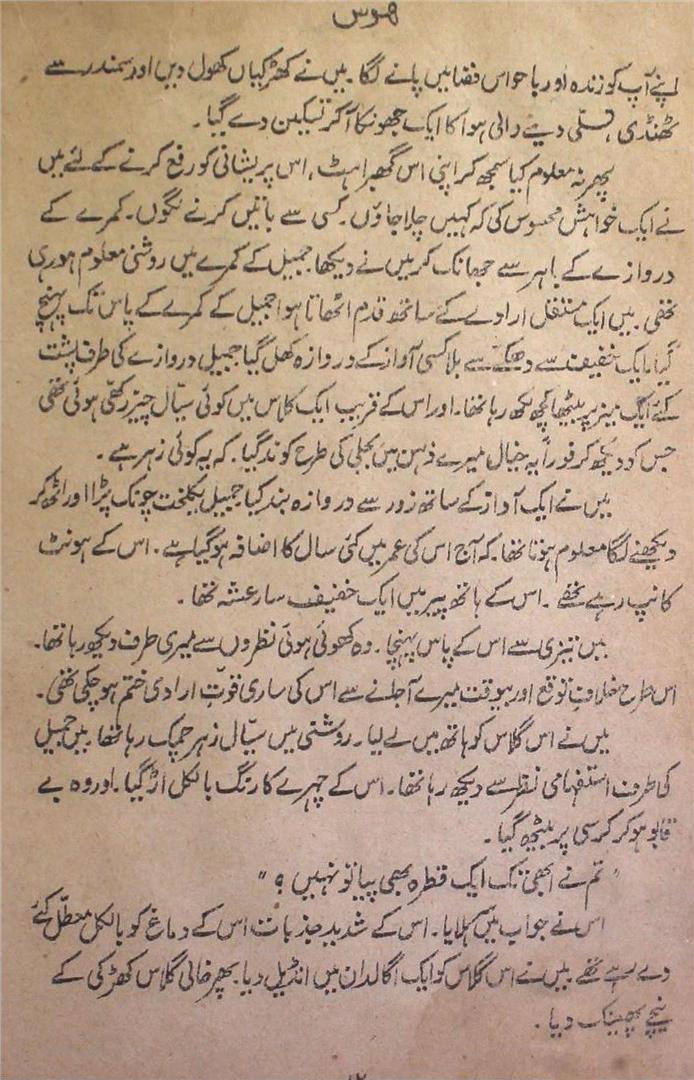 ہوس
اپنے آپ کو زندہ اور باحواس فضا میں پانے لگا۔ میں نے کھڑکیاں کھول دیں اور سمندر سے
ٹھنڈی تسلی دینے والی ہوا کا ایک جھونکا آ کر تسکین دے گیا۔
پھر نہ معلوم کیا سمجھ کر اپنی اس گھبراہٹ، اس پریشانی کو رفع کرنے کے لئے میں
نے ایک خواہش محسوس کی کہ کہیں چلا جاؤں۔ کسی سے باتیں کرنے لگوں۔ کمرے کے
دروازے کے باہر سے جھانک کر میں نے دیکھا جمیل کے کمرے میں روشنی معلوم ہو رہی
تھی۔ میں ایک مستقل ارادے کے ساتھ قدم اٹھاتا ہوا جمیل کے کمرے کے پاس تک پہنچ
گیا۔ ایک خفیف سے دھکے سے بلا کسی آواز کے دروازہ کھل گیا جمیل دروازے کی طرف پشت
کئے ایک میز پر بیٹھا کچھ لکھ رہا تھا۔ اور اس کے قریب ایک گلاس میں کوئی سیّال چیز رکھی ہوئی تھی
جس کو دیکھ کر فوراً یہ خیال میرے ذہن میں بجلی کی طرح کوند گیا۔ کہ یہ کوئی زہر ہے۔
میں نے ایک آواز کے ساتھ زور سے دروازہ بند کیا جمیل یکلخت چونک پڑا اور اٹھ کر
دیکھنے لگا معلوم ہوتا تھا۔ کہ آج اس کی عمر میں کئی سال کا اضافہ ہو گیا ہے۔ اس کے ہونٹ
کانپ رہے تھے۔ اس کے ہاتھ پیر میں ایک خفیف سا رعشہ تھا۔
میں تیزی سے اس کے پاس پہنچا۔ وہ کھوئی ہوئی نظروں سے میری طرف دیکھ رہا تھا۔
اس طرح خلافِ توقع اور بیوقت میرے آ جانے سے اس کی ساری قوتِ ارادی ختم ہو چکی تھی۔
میں نے اس گلاس کو ہاتھ میں لے لیا۔ روشنی میں سیّال زہر چمک رہا تھا۔ میں جمیل
کی طرف استفہامی نظر سے دیکھ رہا تھا۔ اس کے چہرے کا رنگ بالکل اڑ گیا۔ اور وہ بے
قابو ہو کر کرسی پر بیٹھ گیا۔
"تم نے ابھی تک ایک قطرہ بھی پیا تو نہیں؟"
اس نے جواب میں سر ہلایا۔ اس کے شدید جذبات اس کے دماغ کو بالکل معطل کئے
دے رہے تھے میں نے اس گلاس کو ایک اگالدان میں انڈیل دیا۔ پھر خالی گلاس کھڑکی کے
نیچے پھینک دیا۔